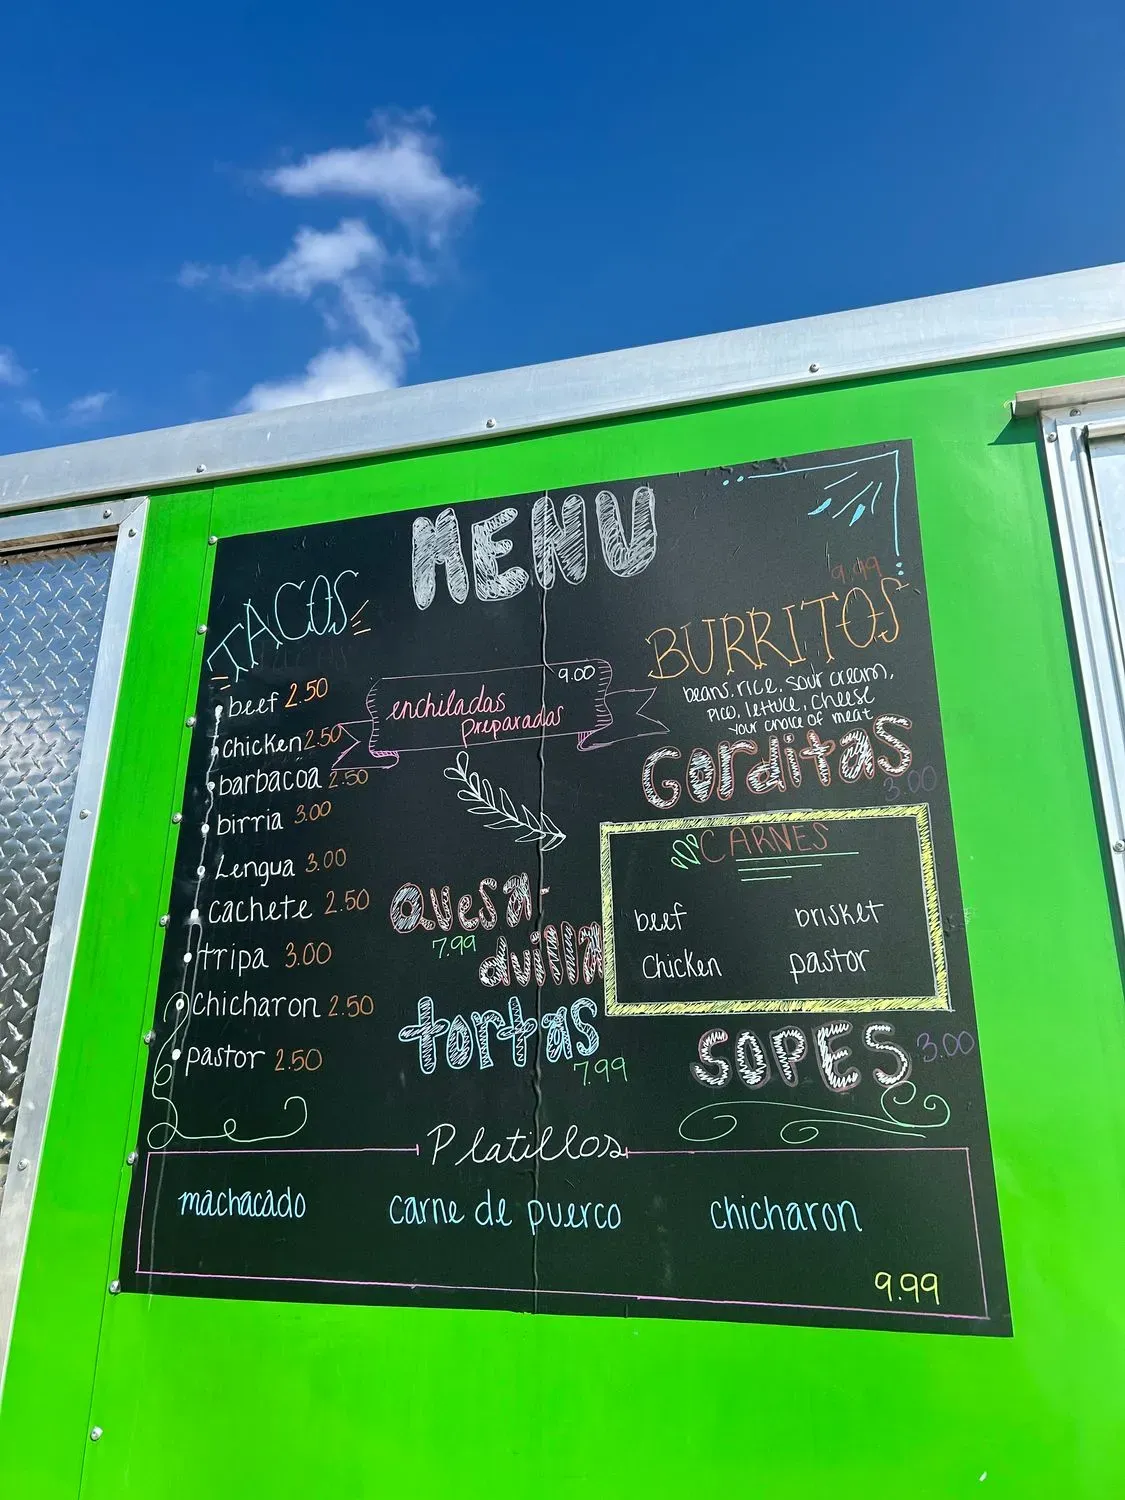 MENU
TACOS
beef 2.50
Chicken 2.50
barbacoa 2.50
birria 3.00
Lengua 3.00
cachete 2.50
tripa 3.00
Chicharon 2.50
pastor 2.50
9.00
enchiladas
preparadas
Quesa-
duilla
7.99
tortas
7.99
9.49
BURRITOS
beans, rice, sour cream,
PICO, lettuce, cheese
your choice of meat
Gorditas
3.00
CARNES
beef brisket
Chicken pastor
SOPES 3.00
Platillos
machacado carne de puerco chicharon
9.99